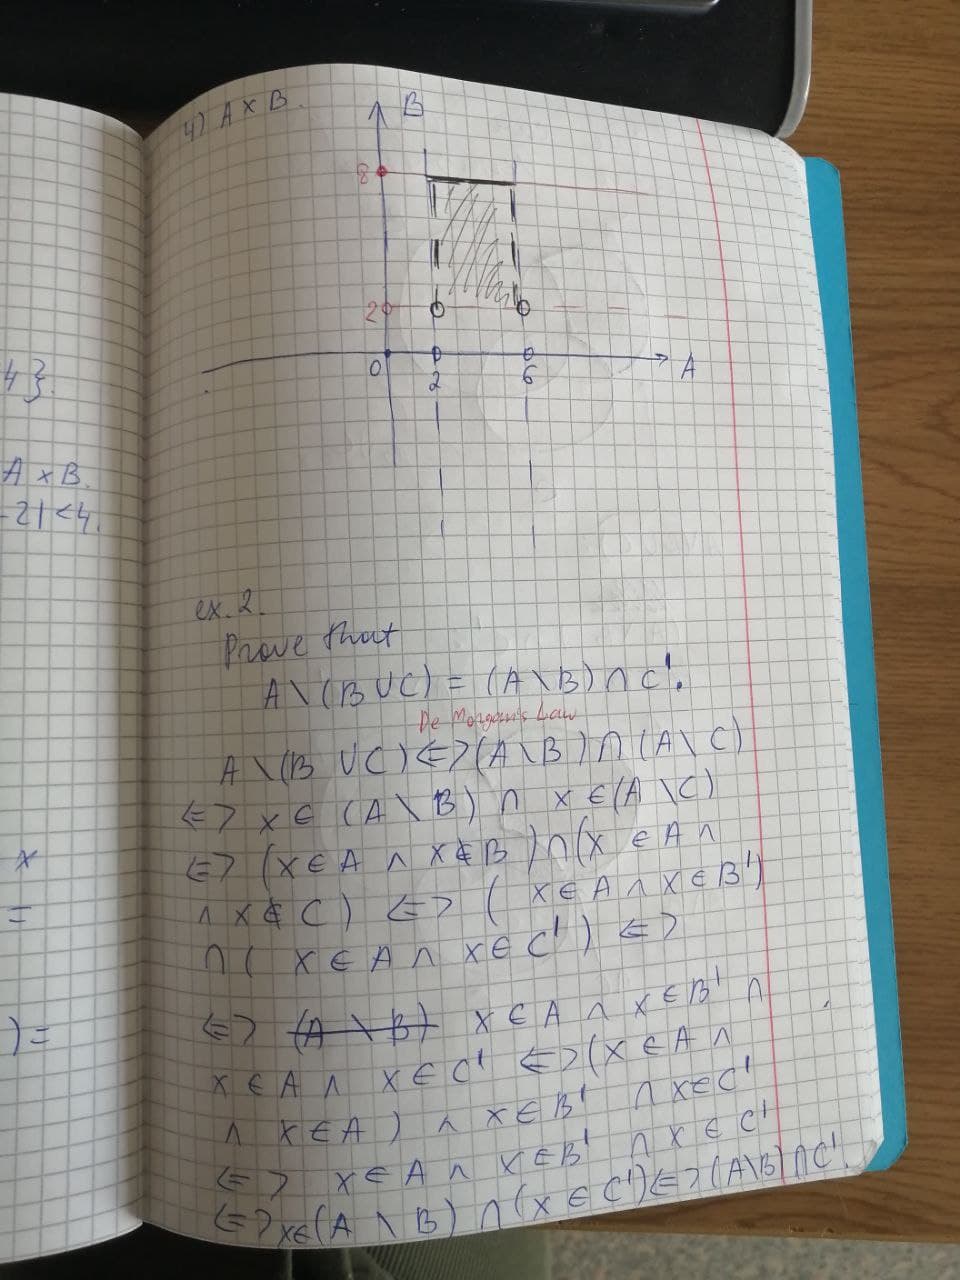 4}.
A × B.
-2|<4.
x
=
)=
4) A × B.
B
8
2
0
2
6
A
ex. 2.
Prove that
A \ (B ∪ C) = (A \ B) ∩ C'.
De Morgan's Law
A \ (B ∪ C) <=> (A \ B) ∩ (A \ C)
<=> x ∈ (A \ B) ∩ x ∈ (A \ C)
<=> (x ∈ A ∧ x ∉ B) ∩ (x ∈ A ∧
∧ x ∉ C) <=> ( x ∈ A ∧ x ∈ B')
∩ ( x ∈ A ∧ x ∈ C') <=>
<=> (A \ B) x ∈ A ∧ x ∈ B' ∩
x ∈ A ∧ x ∈ C' <=> (x ∈ A ∧
∧ x ∈ A) ∧ x ∈ B' ∩ x ∈ C'
<=> x ∈ A ∧ x ∈ B' ∩ x ∈ C'
<=> x ∈ (A \ B) ∩ (x ∈ C') <=> (A \ B) ∩ C'.